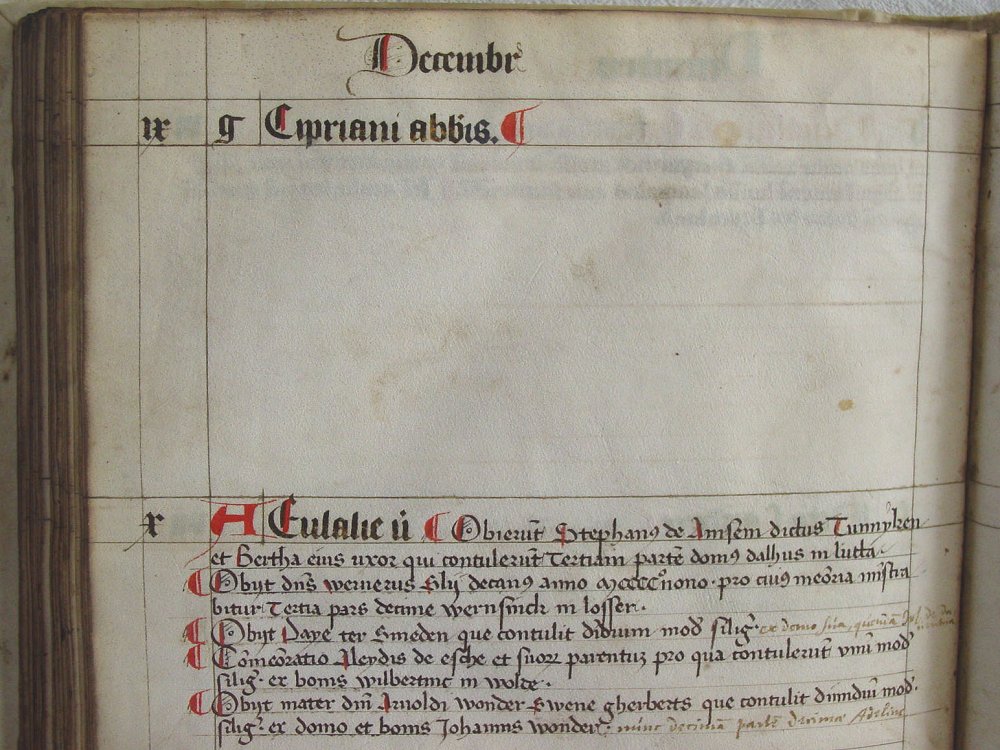 Decembr
ix g Cipriani abbis.
x A Eulalie v Obierut Stephan9 de Amsem dictus Tunnyken
et Bertha eius uxor qui contulerut Tertiam parte dom9 dalhus in lutta.
Obyt dns wernerus Sly decan9 anno mcccco nono. pro cui9 meoria mistra
bitur Tertia pars decime wernsinck in losser.
Obyt Daye ter Smeden que contulit didium mod silig. ex domo sua,
Comeoratio Aleydis de esche et suor parentuz pro qua contulerut vnu mod
silig. ex bonis wilbertinc in wolde.
Obyt mater dni Arnoldi wonder Swene gherberts que contulit dimidiu mod.
silig. ex domo et bonis Johannis wonder. nunc decima parte decima